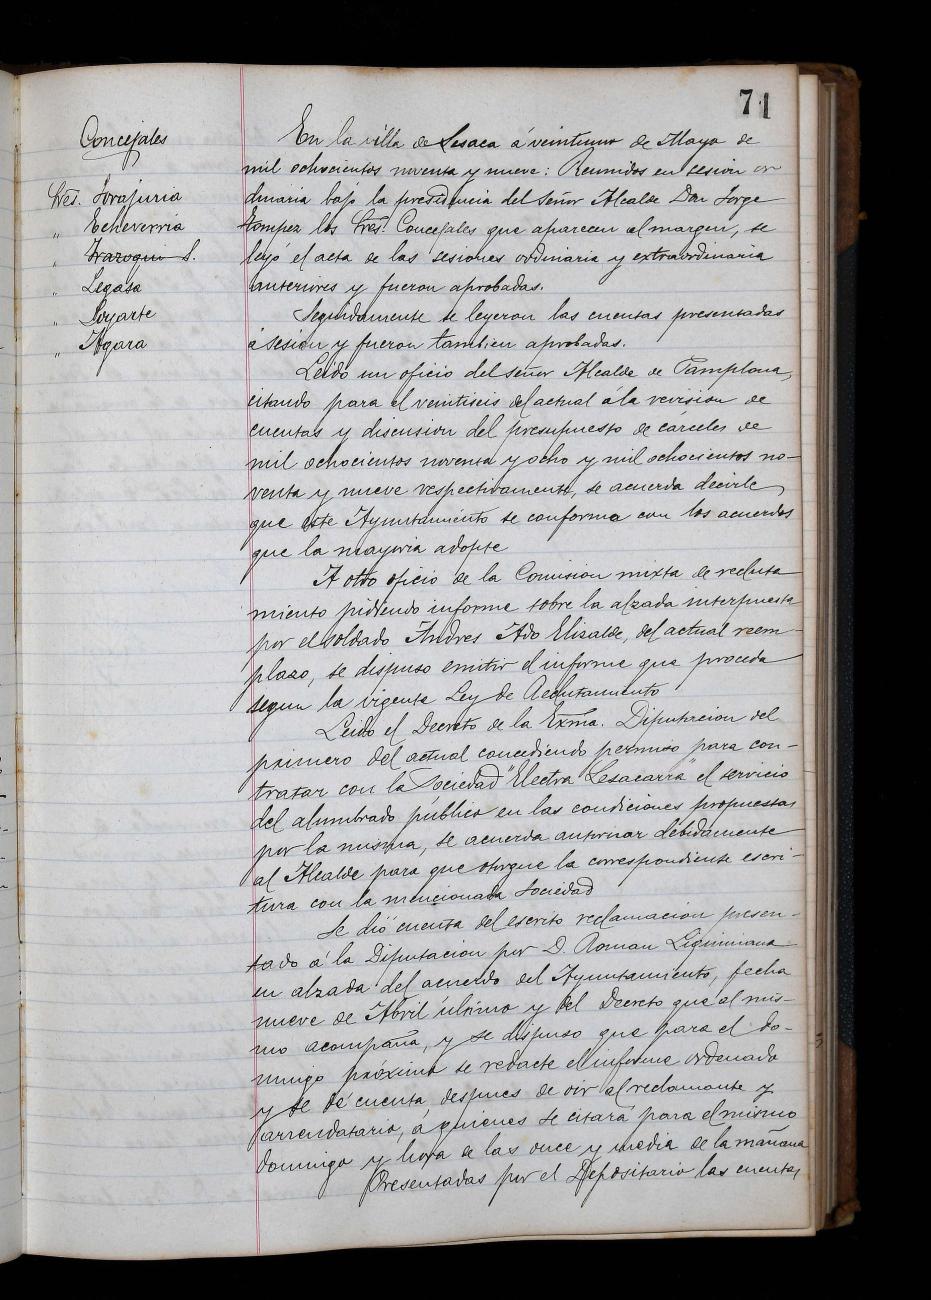 71
Concejales
Sres. Jorajuria
" Echeverria
" Irazoqui S.
" Legasa
" Loyarte
" Agara
En la villa de Lesaca á veintiuno de Mayo de
mil ochocientos noventa y nueve: Reunidos en sesion or
dinaria bajo la presidencia del Señor Alcalde Don Jorge
los Sres. Concejales que aparecen al margen, se
leyó el acta de las sesiones ordinaria y extraordinaria
anteriores y fueron aprobadas.
Seguidamente se leyeron las cuentas presentadas
á sesión y fueron tambien aprobadas.
Leido un oficio del señor Alcalde de Pamplona,
citando para el veintiseis del actual á la revision de
cuentas y discusion del presupuesto de cárceles de
mil ochocientos noventa y ocho y mil ochocientos no-
venta y nueve respectivamente, se acuerda decirle
que este Ayuntamiento se conforma con los acuerdos
que la mayoria adopte
A otro oficio de la Comision mixta de recluta
miento pidiendo informe sobre la alzada interpuesta
por el soldado Andres Ado Elizalde, del actual reem-
plazo, se dispuso emitir el informe que proceda
segun la vigente Ley de Reclutamiento
Leido el Decreto de la Exma. Diputacion del
primero del actual concediendo permiso para con-
tratar con la Sociedad "Electra Lesacarra" el servicio
del alumbrado público en las condiciones propuestas
por la misma, se acuerda autorizar debidamente
al Alcalde para que otorgue la correspondiente escri-
tura con la mencionada Sociedad
Se dió cuenta del escrito reclamacion presen-
tado á la Diputacion por D. Roman
en alzada del acuerdo del Ayuntamiento, fecha
nueve de Abril último y del Decreto que al mis-
mo acompaña, y se dispuso que para el do-
mingo próximo se redacte el informe ordenado
y se dé cuenta, despues de oir al reclamante y
arrendatario, á quienes se citará para el mismo
domingo y hora de las once y media de la mañana
Presentadas por el Depositario las cuentas